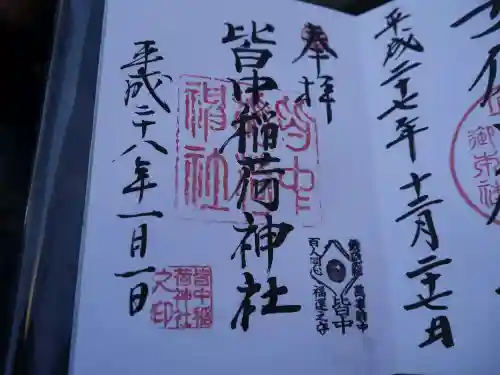 平成二十七年十二月二十七日
奉拝
皆中稲荷神社
平成二十八年一月一日
皆中稲荷神社之印
百人同心
皆中
福運之守